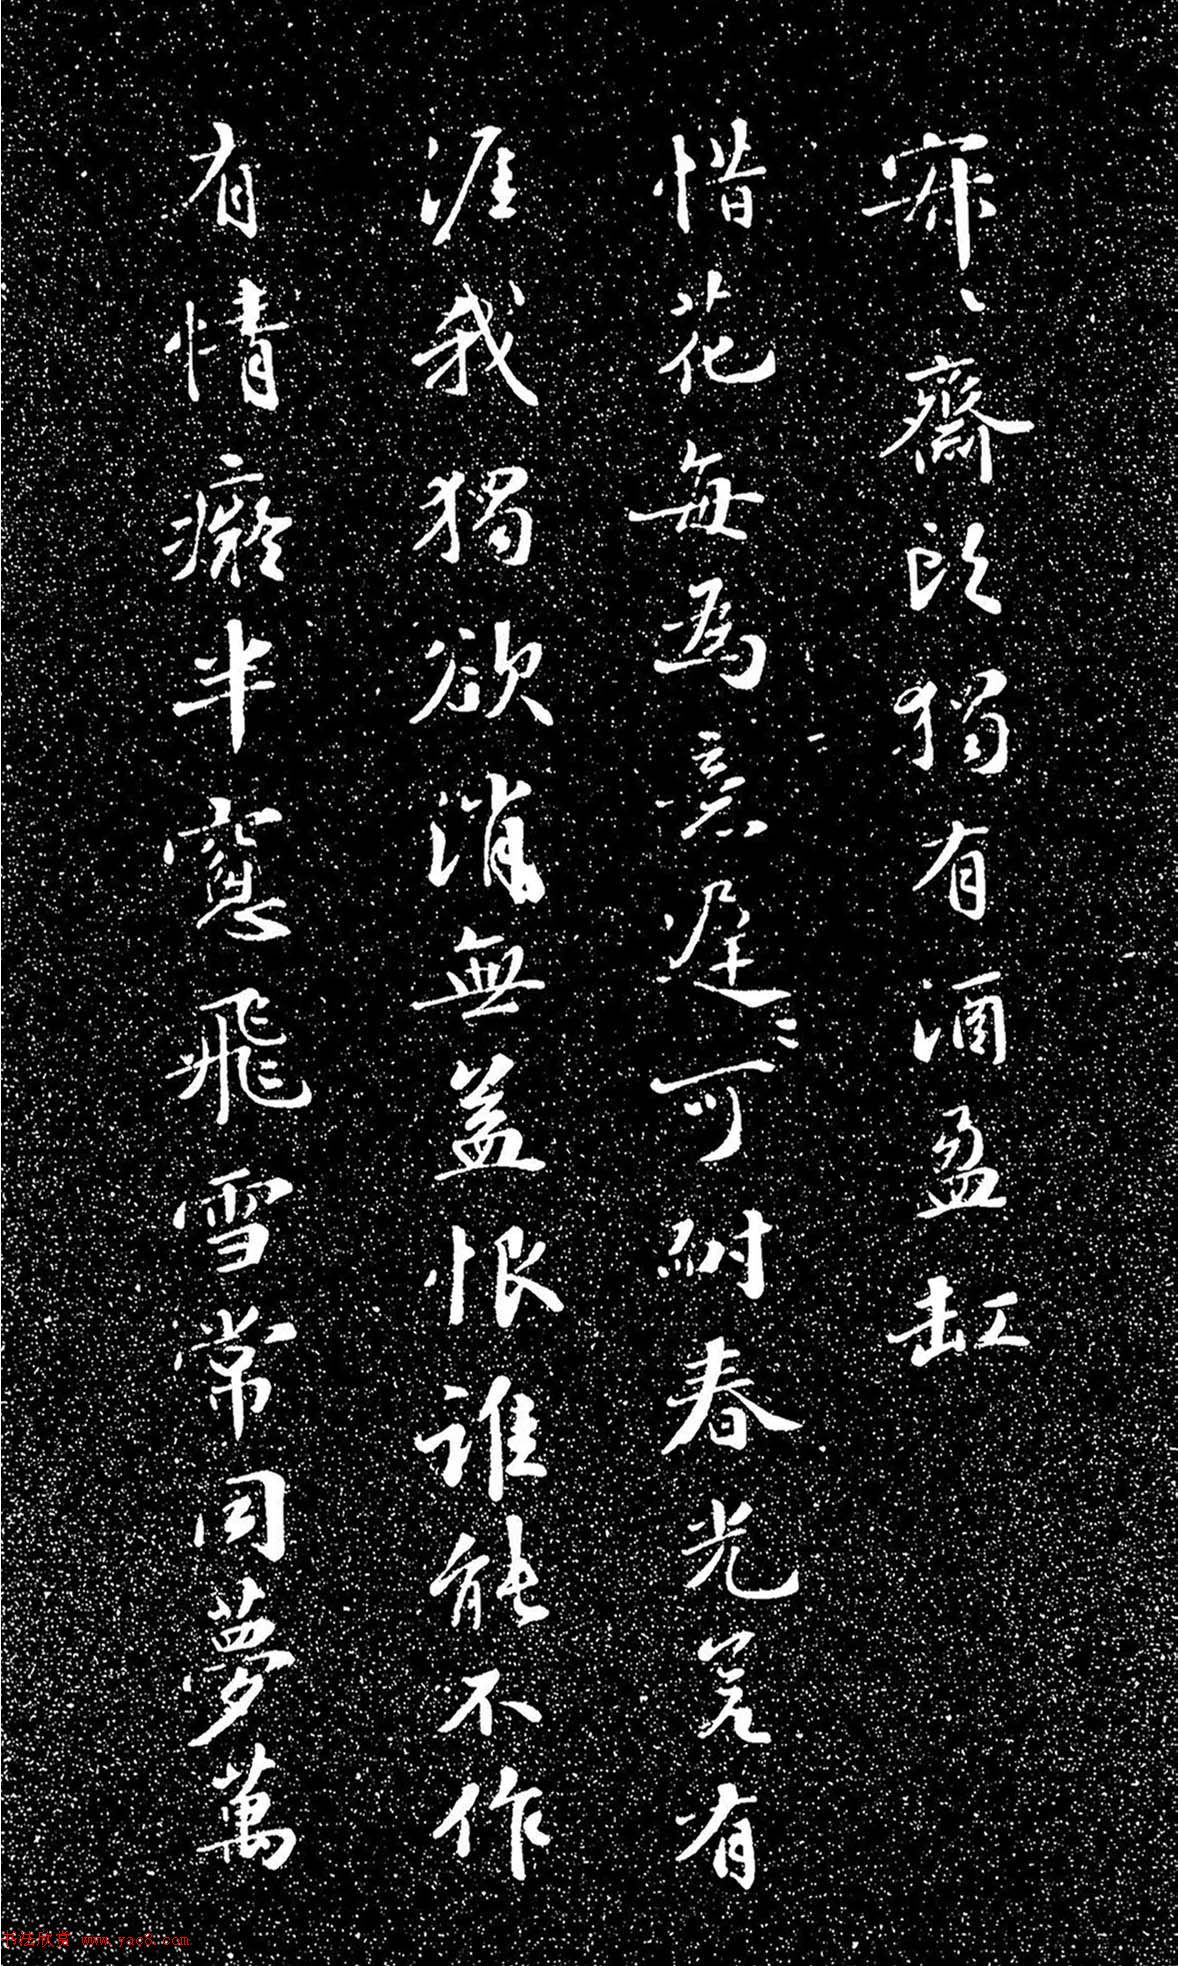 寂〻齋頭獨有酒盈缸
惜花每為意遲〻可耐春光羌有
涯我獨欲消無益恨誰能不作
有情癡半窻飛雪常同夢萬
书法欣赏 www.yac8.com